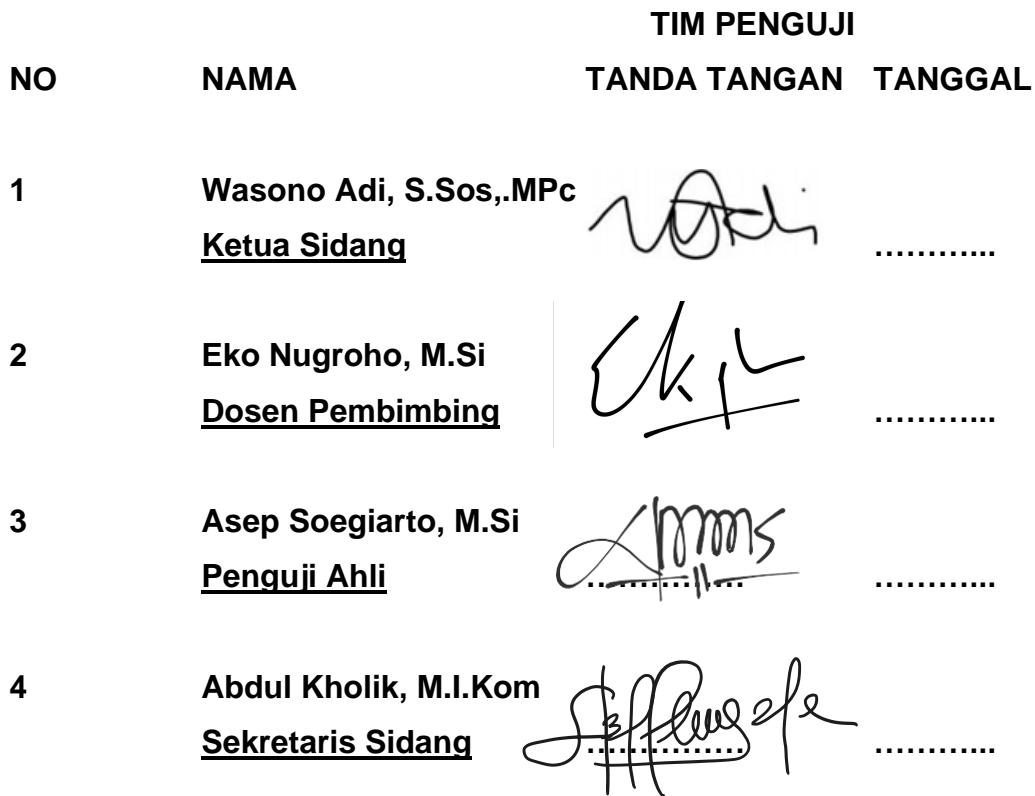 TIM PENGUJI
NO NAMA TANDA TANGAN TANGGAL
1 Wasono Adi, S.Sos,.MPc
Ketua Sidang …………...
2 Eko Nugroho, M.Si
Dosen Pembimbing …………...
3 Asep Soegiarto, M.Si
Penguji Ahli …………….. …………...
4 Abdul Kholik, M.I.Kom
Sekretaris Sidang …………….. …………...